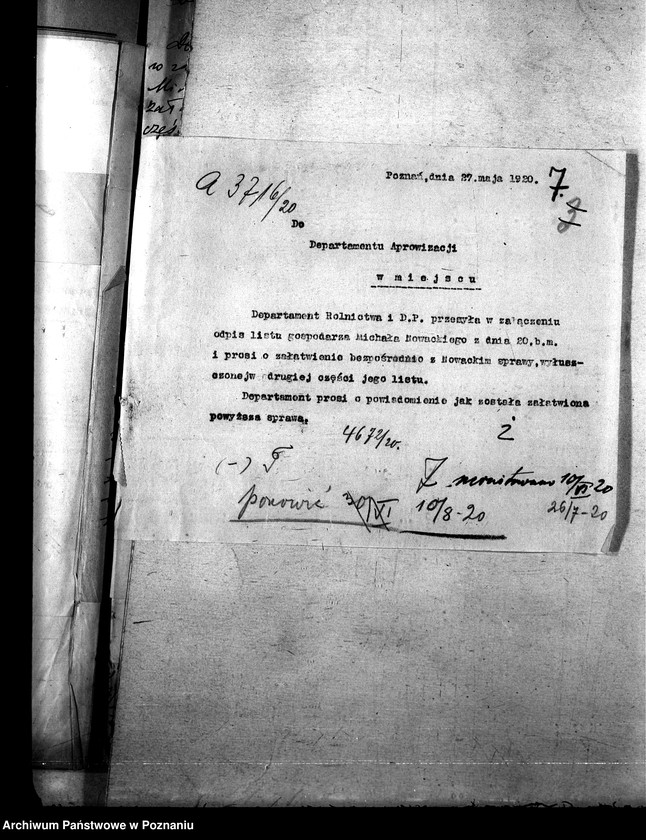 A 3716/20
Poznań,dnia 27.maja 1920.
7.
Do
Departamentu Aprowizacji
w miejscu
Departament Rolnictwa i D.P. przesyła w załączeniu
odpis listu gospodarza Michała Nowackiego z dnia 20.b.m.
i prosi o załatwienie bezpośrednio z Nowackim sprawy,wyłusz-
czonejw drugiej części jego listu.
Departament prosi o powiadomienie jak została załatwiona
powyższa sprawa.
4672/20.
Ż
(-) F
Z monitowano 10/VI 20
ponowić 30/VI 10/8-20 26/7-20
Archiwum Państwowe w Poznaniu